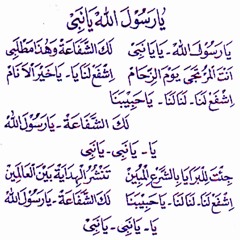 يَارَسُوْلَ اللهِ يَانَبِىْ
يَارَسُوْلَ اللهِ - يَايَانَبِىْ   لَكَ الشَّفَاعَةْ وَهٰذَا مَطْلَبِىْ
اَنْتَ الْمُرْتَجَى يَوْمَ الزِّحَامِ   اِشْفَعْ لَنَا يَا - يَاخَيْرَ الْاَنَامِ
اِشْفَعْ لَنَا - لَنَا لَنَا - يَاحَبِيْبَنَا
لَكَ الشَّفَاعَةْ - يَارَسُوْلَ اللهْ
يَا - يَانَبِىْ - يَانَبِىْ
جِئْتَ لِلْبَرَايَا بِالشَّرْعِ الْمُبِيْنْ   تَنْتَثِرُ الْهِدَايَةْ بَيْنَ الْعَالَمِيْنْ
اِشْفَعْ لَنَا - لَنَا لَنَا - يَاحَبِيْبَنَا   لَكَ الشَّفَاعَةْ - يَارَسُوْلَ اللهْ
يَا - يَانَبِىْ - يَانَبِىْ